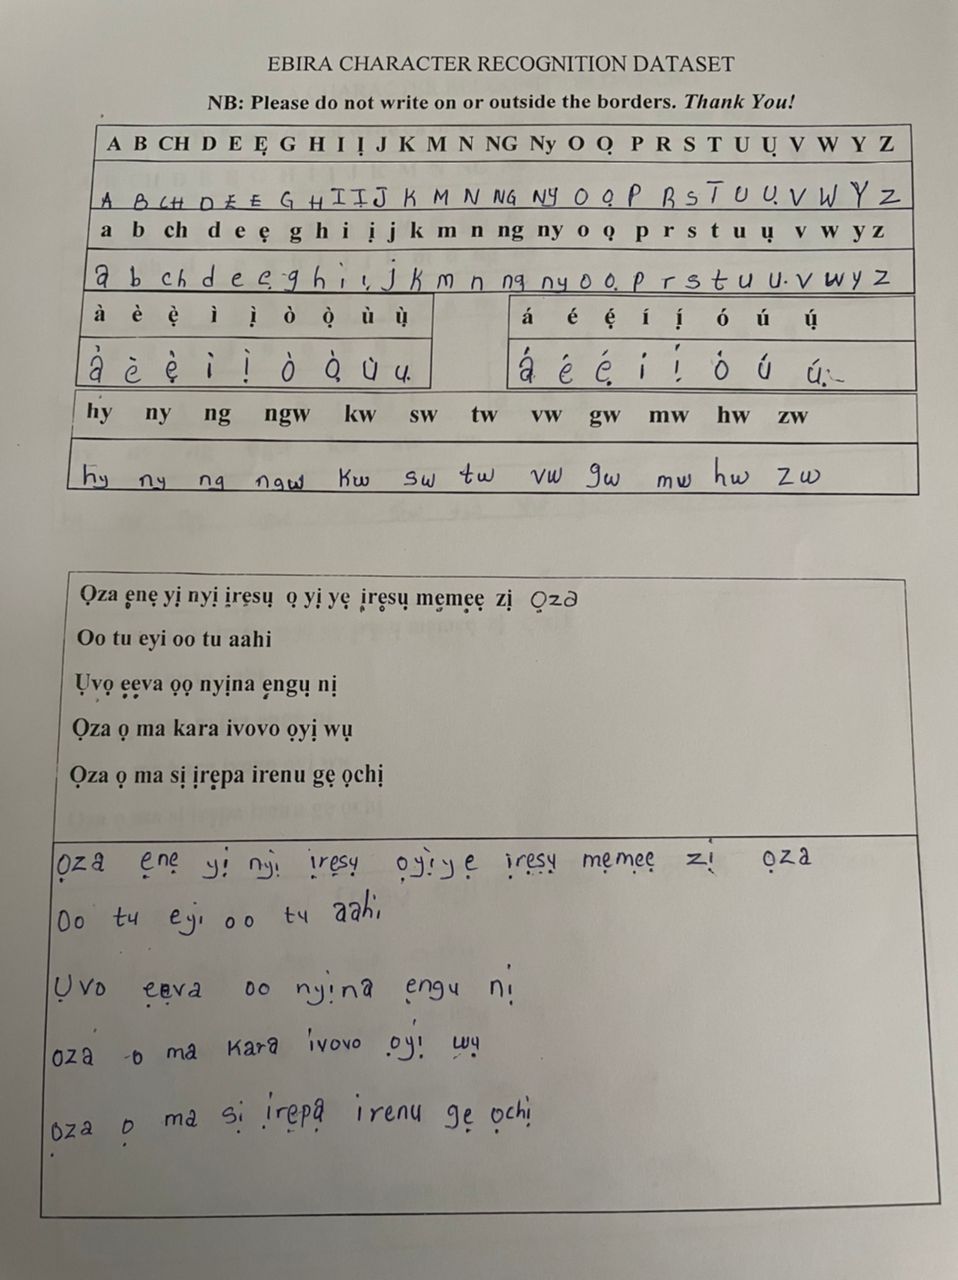 EBIRA CHARACTER RECOGNITION DATASET
NB: Please do not write on or outside the borders. Thank You!
A B CH D E Ẹ G H I Ị J K M N NG Ny O Ọ P R S T U Ụ V W Y Z
A B CH D E E G H I I J K M N NG NY O Ọ P R S T U Ụ V W Y Z
a b ch d e ẹ g h i ị j k m n ng ny o ọ p r s t u ụ v w y z
a b ch d e ẹ g h i ị j k m n ng ny o ọ p r s t u ụ v w y z
à è ẹ̀ ì ị̀ ò ọ̀ ù ụ̀ á é ẹ́ í ị́ ó ú ụ́
à è ẹ̀ ì ị̀ ò ọ̀ ù ụ á é ẹ́ í ị́ ó ú ụ́
hy ny ng ngw kw sw tw vw gw mw hw zw
hy ny ng ngw kw sw tw vw gw mw hw zw
Ọza ẹnẹ yị nyị ịrẹsụ ọ yị yẹ ịrẹsụ mẹmẹẹ zị Ọza
Oo tu eyi oo tu aahi
Ụvọ ẹẹva ọọ nyịna ẹngụ nị
Ọza ọ ma kara ivovo ọyị wụ
Ọza ọ ma sị ịrẹpa irenu gẹ ọchị
Ọza ẹnẹ yị nyị ịrẹsụ ọyịyẹ ịrẹsụ mẹmẹẹ zị ọza
Oo tu eyi oo tu aahi
Ụvo ẹẹva oo nyịna ẹngu nị
oza o ma kara ivovo ọyị wụ
ọza ọ ma sị ịrẹpạ irenu gẹ ọchị